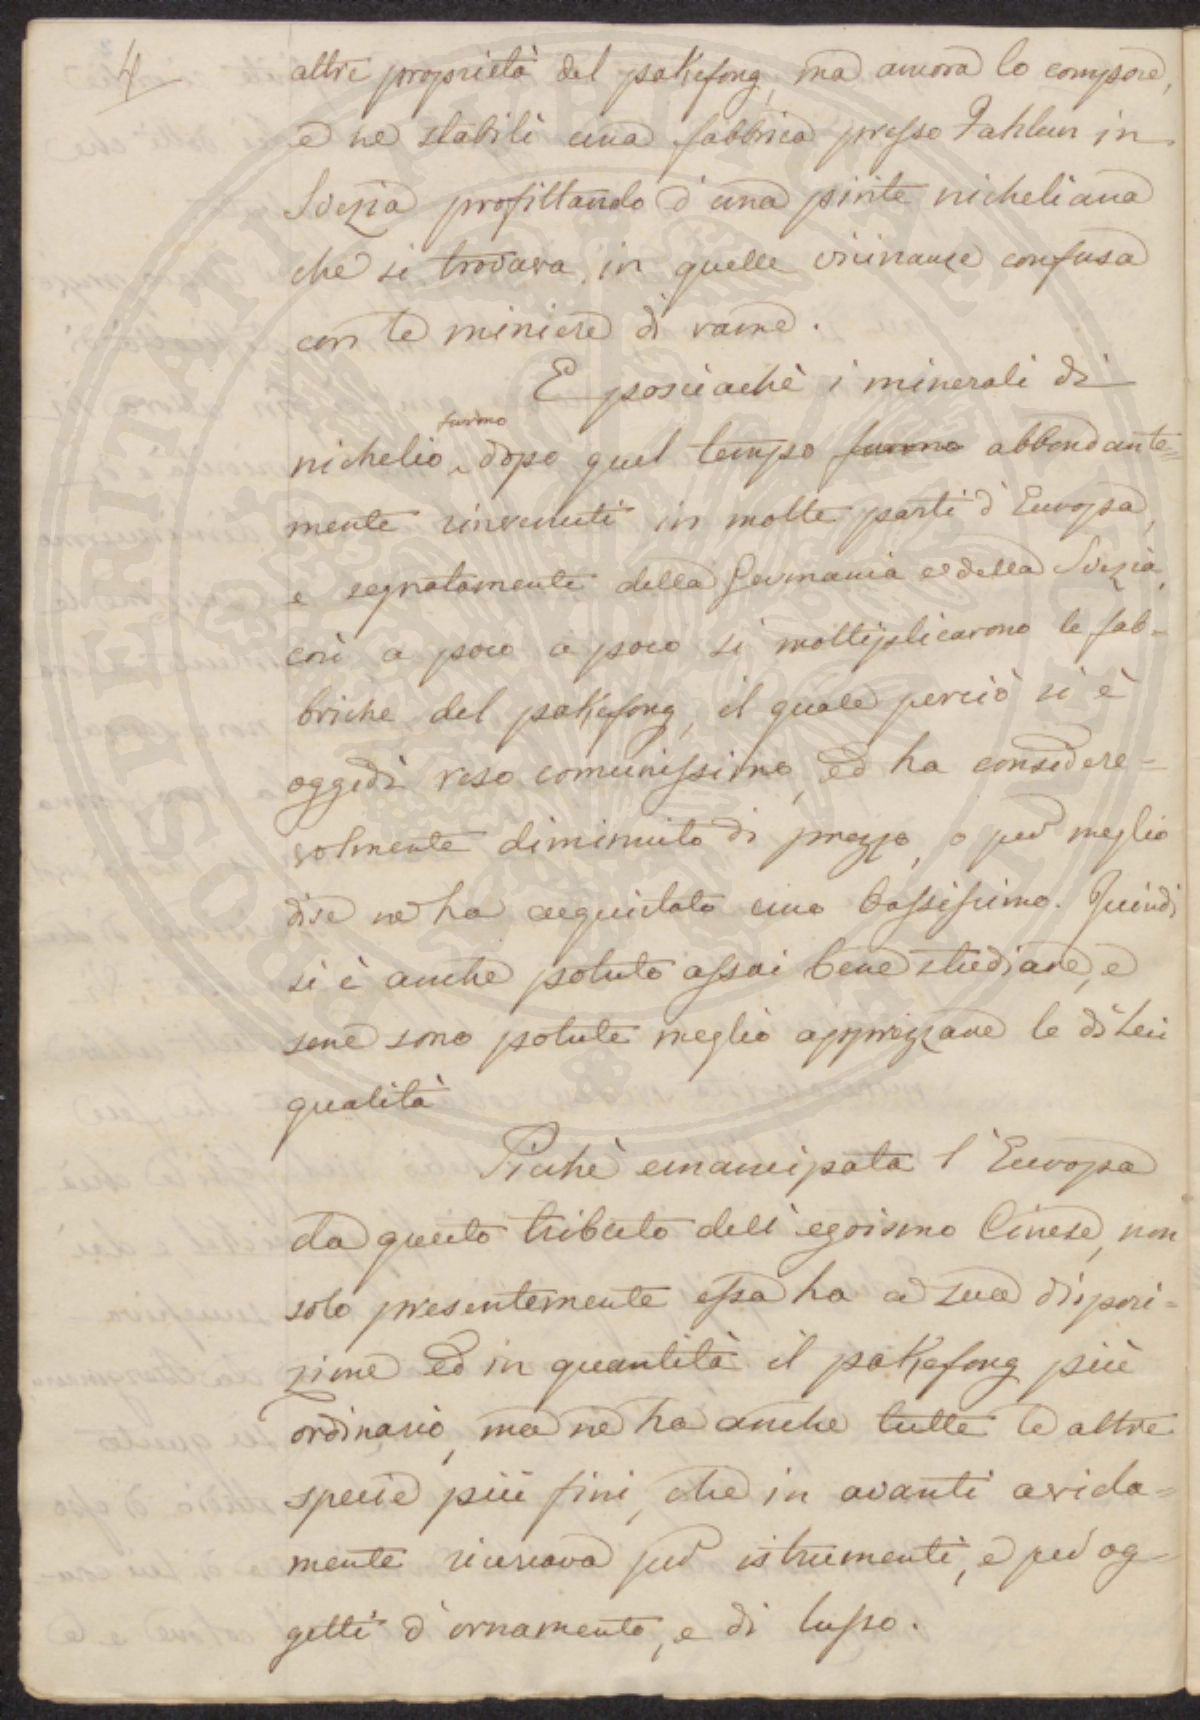 4
altre proprietà del pakefong, ma ancora lo compose,
e ne stabilì una fabbrica presso Fahlun in
Svezia profittando d'una pirite nicheliana
che si trovava in quelle vicinanze confusa
con le miniere di rame.
E posciachè i minerali di
furono
nichelio dopo quel tempo furono abbondante=
mente rinvenuti in molte parti d'Europa,
e segnatamente della Germania e della Svezia,
così a poco a poco si moltiplicarono le fab=
briche del pakefong, il quale perciò si è
oggedì reso comunissimo, ed ha considere=
volmente diminuito di prezzo, o per meglio
dire ne ha acquistato uno bassissimo. Quindi
si è anche potuto assai bene studiare, e
sene sono potute meglio apprezzare le di lui
qualità
Sicchè emancipata l'Europa
da questo tributo dell'egoismo Cinese, non
solo presentemente essa ha a sua disposi=
zione ed in quantità il pakefong più
ordinario, ma ne ha anche tutte le altre
specie più fini, che in avanti avida=
mente ricercava per istrumenti, e per og=
getti d'ornamento, e di lusso.
PROSPERITATI PUBLICAE